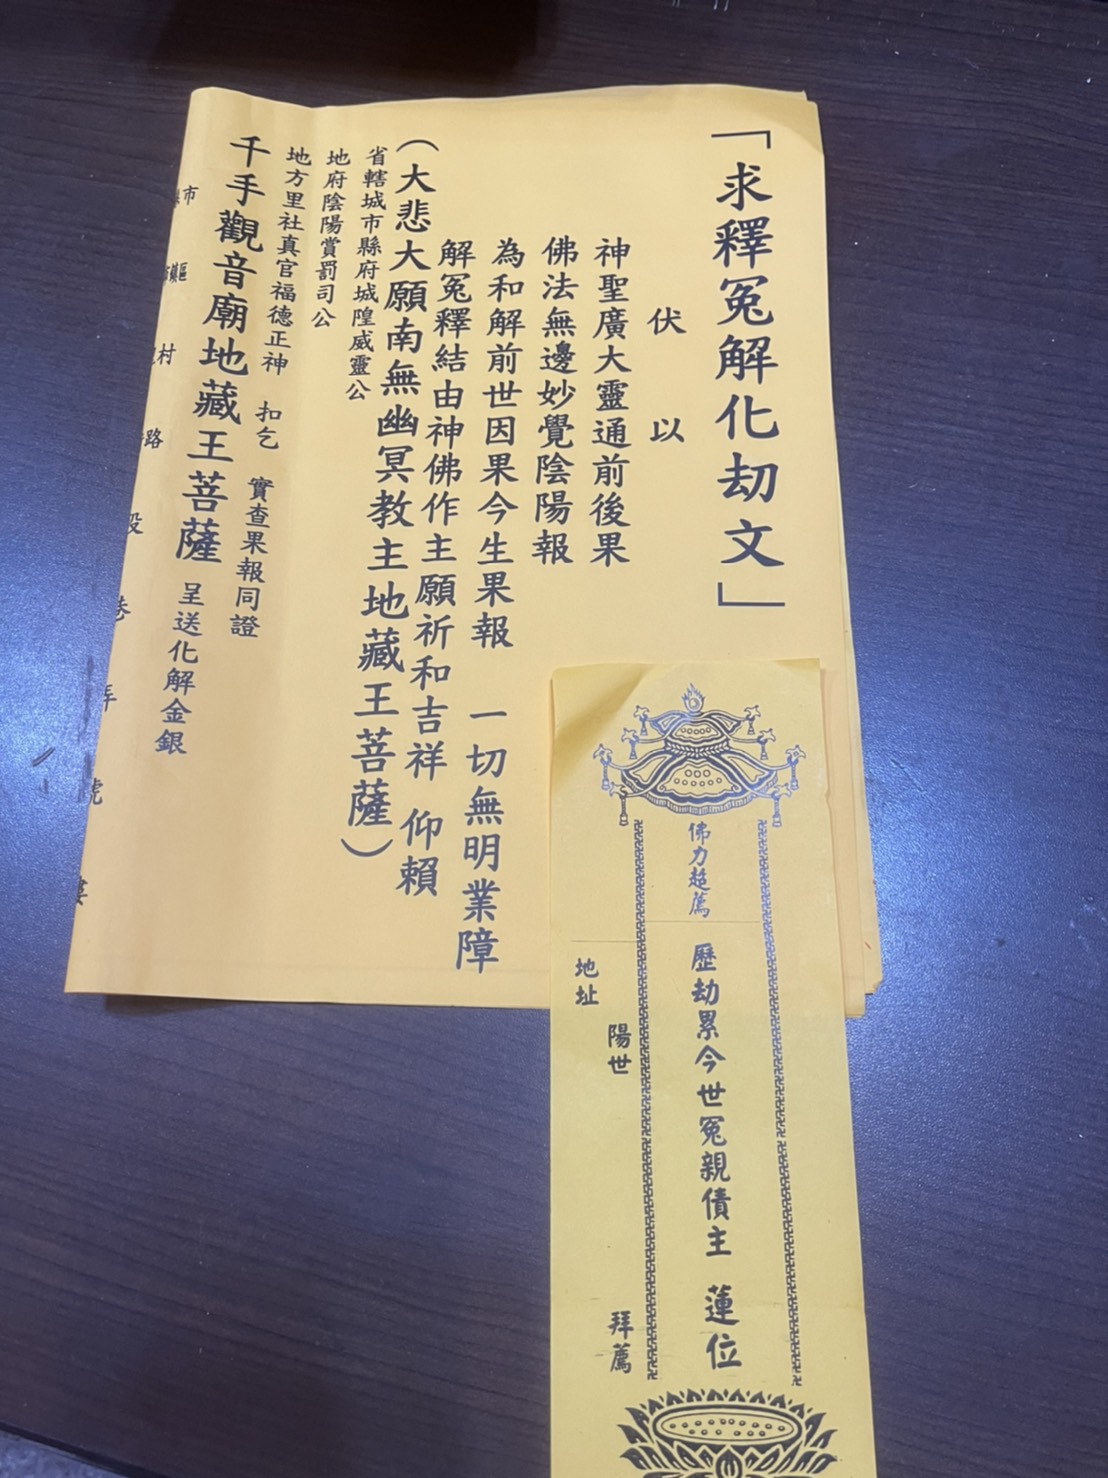 「求釋冤解化劫文」
伏以
神聖廣大靈通前後果
佛法無邊妙覺陰陽報
為和解前世因果今生果報 一切無明業障
解冤釋結由神佛作主願祈和吉祥 仰賴
（大悲大願南無幽冥教主地藏王菩薩）
省轄城市縣府城隍威靈公
地府陰陽賞罰司公
地方里社真官福德正神 扣乞 實查果報同證
千手觀音廟地藏王菩薩 呈送化解金銀
市 鎮區 村 路 段 巷 弄 號 樓
佛力超薦
歷劫累今世冤親債主 蓮位
陽世 拜薦
地址